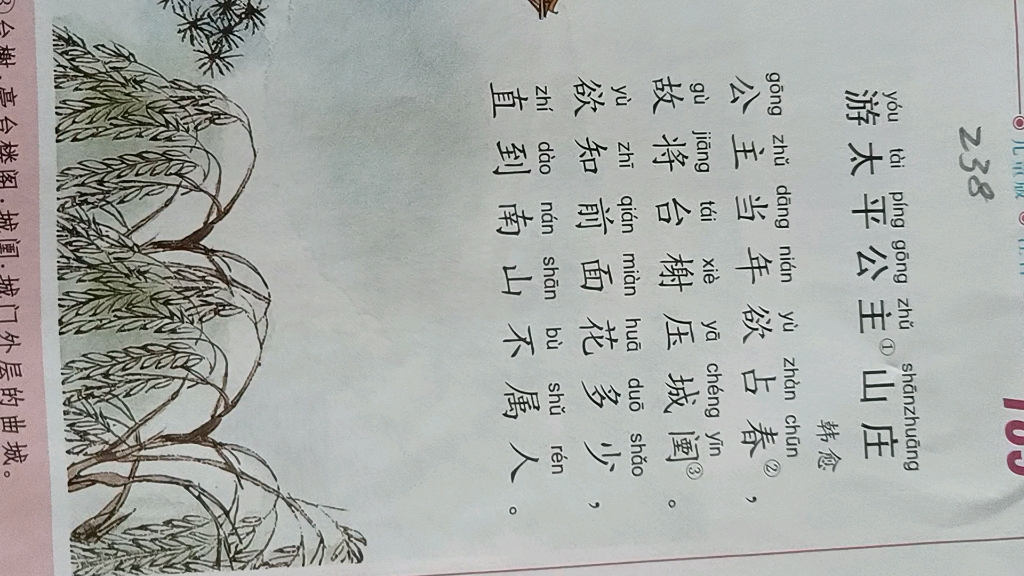 238
yóu tài píng gōng zhǔ shānzhuāng
游太平公主①山庄
韩愈
gōng zhǔ dāng nián yù zhàn chūn
公主当年欲占春②，
gù jiāng tái xiè yā chéng yīn
故将台榭压城闉③。
yù zhī qián miàn huā duō shǎo
欲知前面花多少，
zhí dào nán shān bù shǔ rén
直到南山不属人。
③台榭：亭台楼阁。城闉：城门外层的曲城。